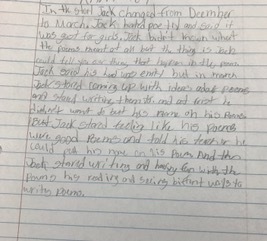 In the start Jack changed from December
to March. Jack hated poetry and said it
was just for girls. Jack didn't know what
the poems meant at all but the thing is Jack
could tell you every thing that happens in the poem
Jack said his had was emty but in march
Jack stard coming up with ideas about poems
and stared writing them and at frist he
didn't want to put his name on his Poems
But Jack stard feeling like his poems
were good Poems and told his teacher he
could put his name on his Poems And then
Jack stared writing and having fun with the
Poems his reading and seeing diffrent ways to
writes Poems.